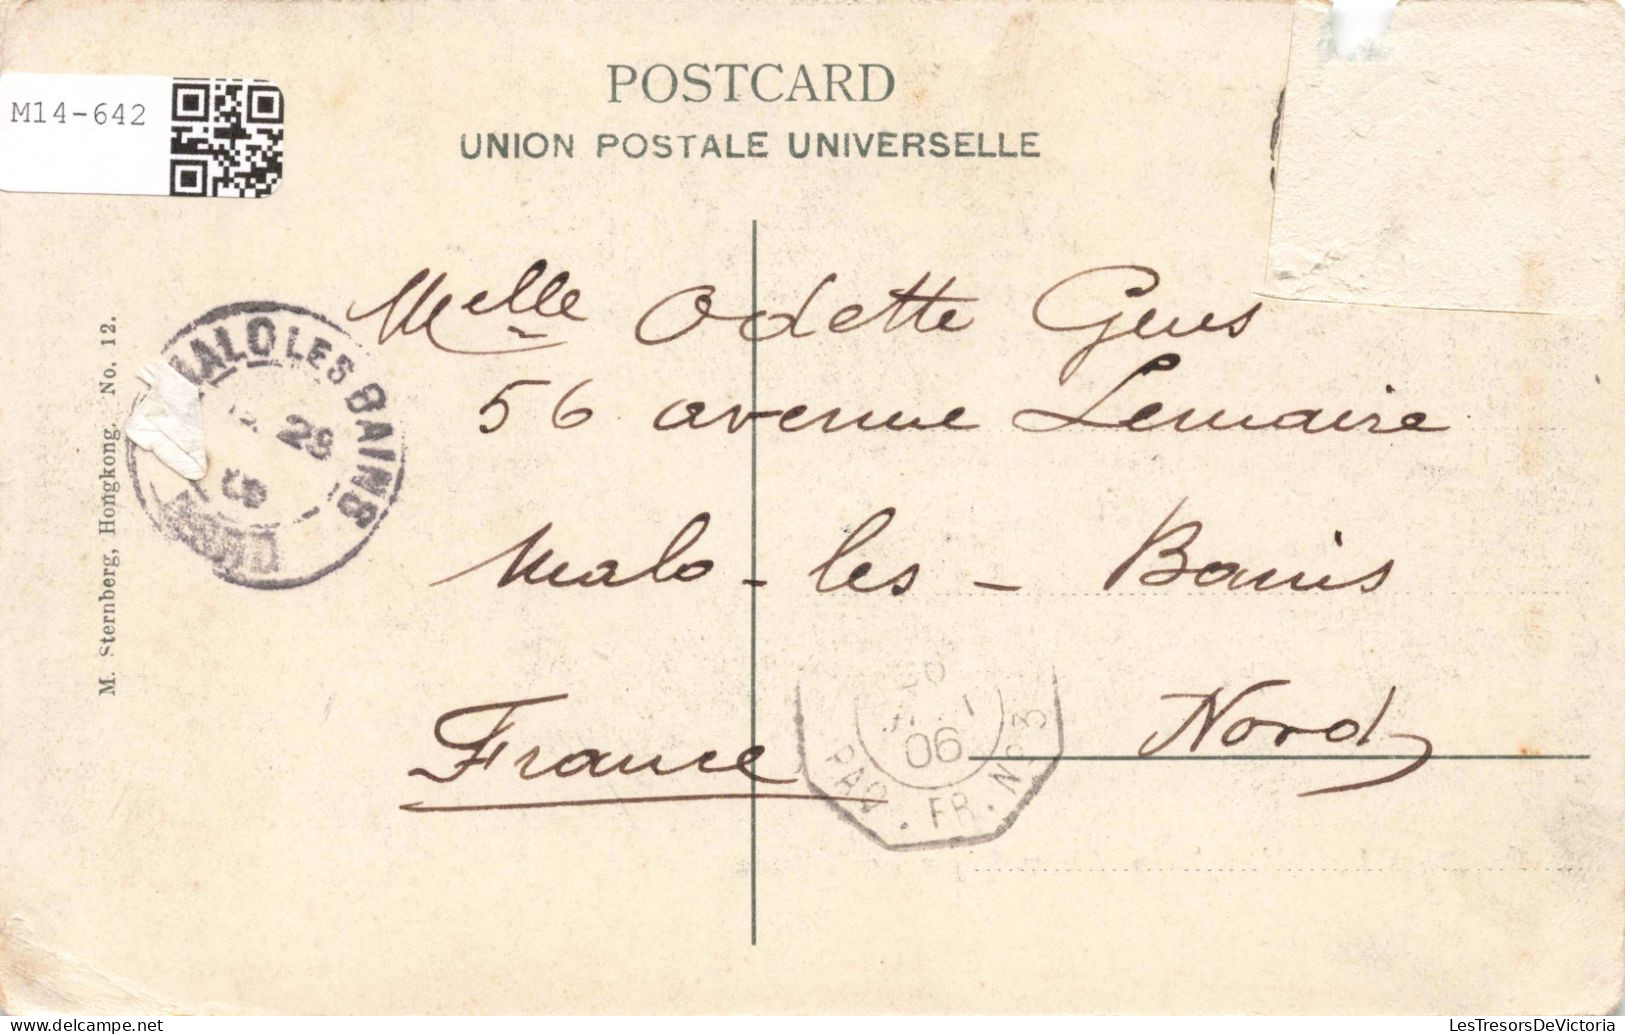 M14-642
POSTCARD
UNION POSTALE UNIVERSELLE
M. Sternberg, Hongkong, No. 12.
MALO LES BAINS
29
Melle Odette Geus
56 avenue Lemaire
Malo-les-Bains
Nord
France
06
PAQ. FR. No 3
LesTresorsDeVictoria